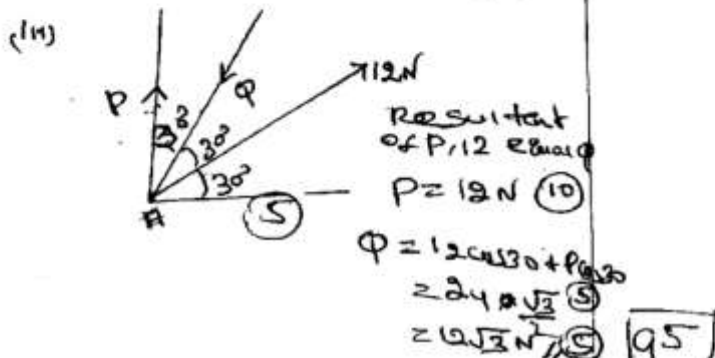 (iii)
P
Q
12N
30°
30°
30°
A
5
Resultant
of P, 12 equal
P = 12N (10)
Q = 12cos30 + Pcos30
= 24 √3/2 (5)
= 12√3 N // (5)
95